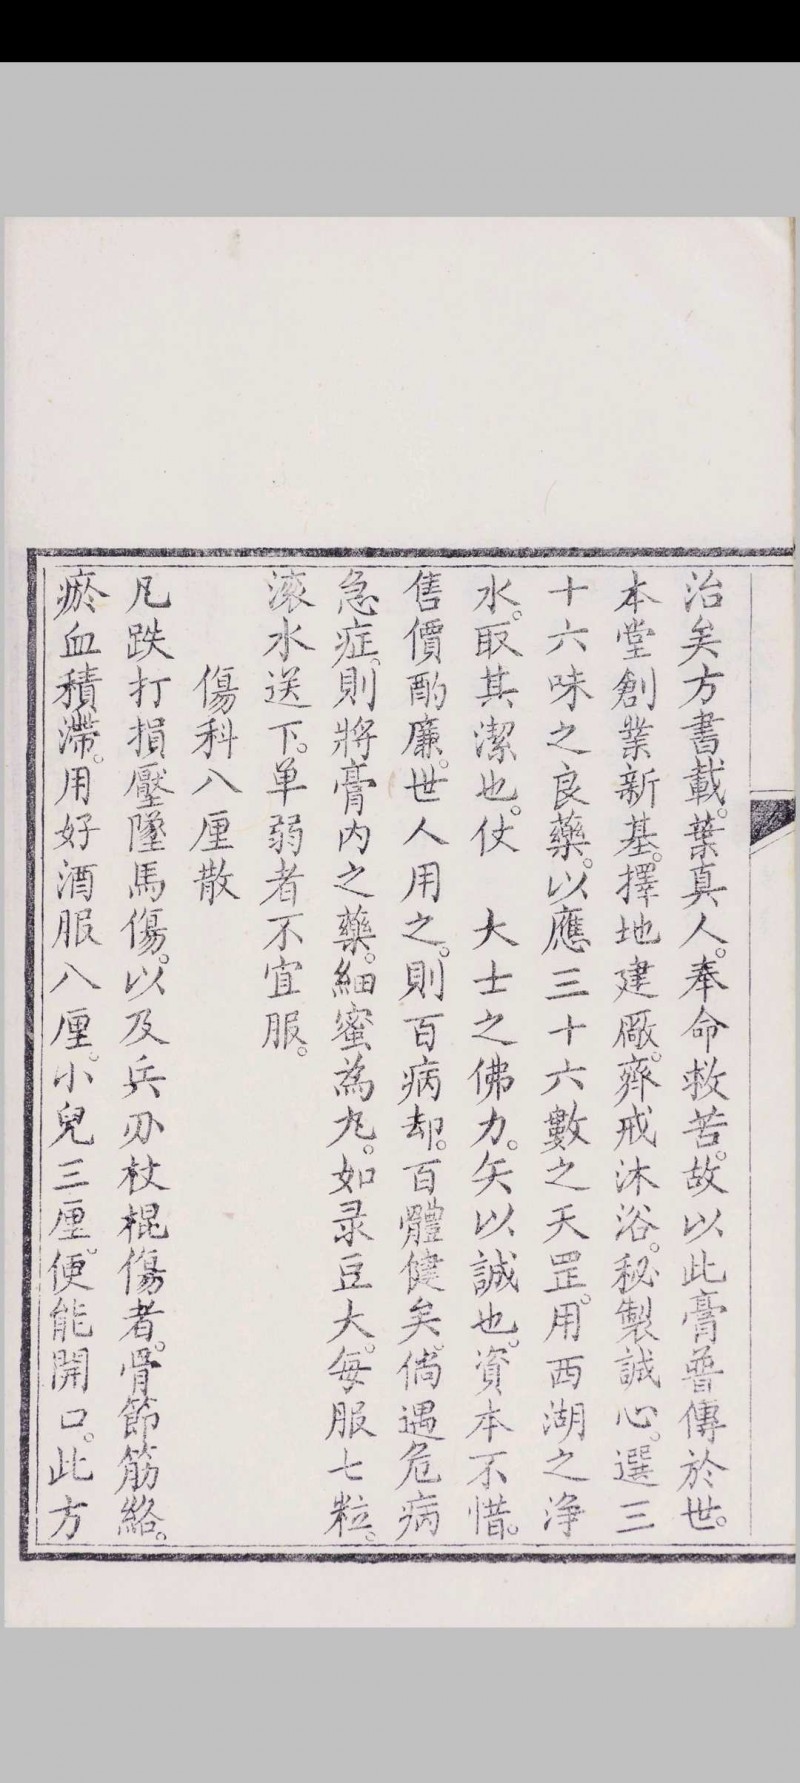 治矣方書載。葉真人。奉命救苦。故以此膏普傳於世。
本堂創業新基。擇地建廠。齊戒沐浴。秘製誠心。選三
十六味之良藥。以應三十六數之天罡。用西湖之浄
水。取其潔也。仗　大士之佛力。矢以誠也。資本不惜。
售價酌廉。世人用之。則百病却。百體健矣。倘遇危病
急症。則將膏内之藥。細蜜為丸。如录豆大。每服七粒。
滚水送下。单弱者不宜服。
傷科八厘散
凡跌打損壓墜馬傷。以及兵刃杖棍傷者。骨節筋絡。
瘀血積滯。用好酒服八厘。小兒三厘。便能開口。此方